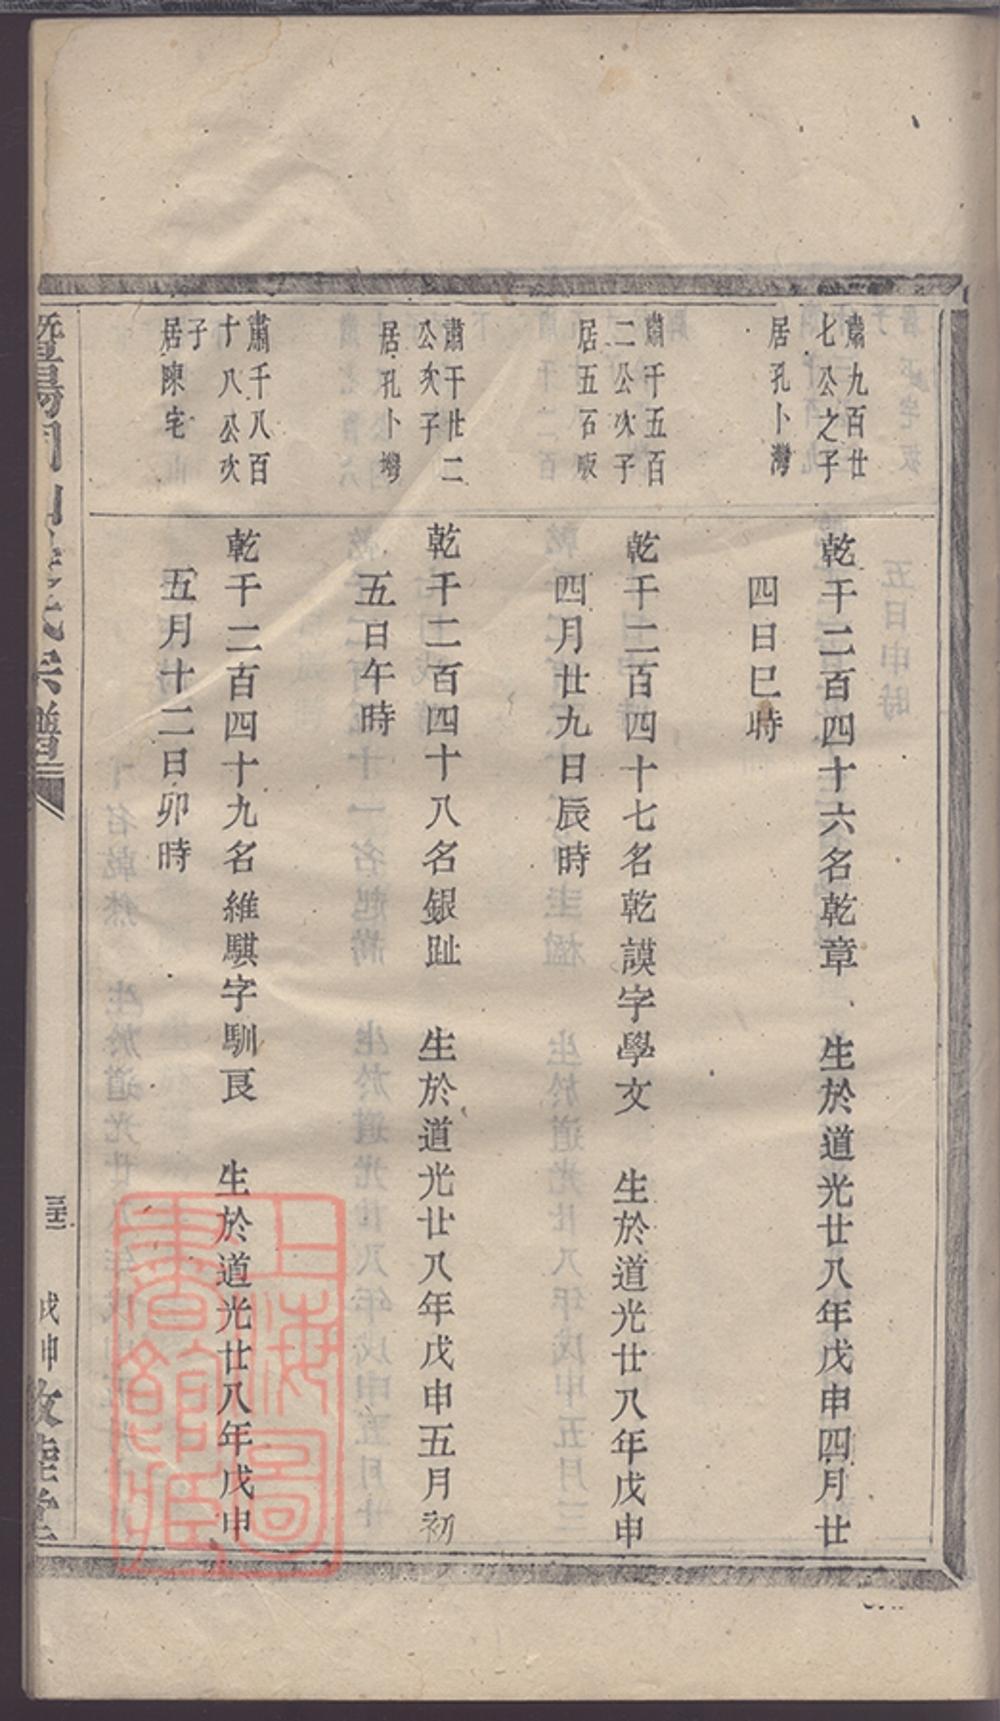 肅九百廿
七公之子
居孔卜灣
乾千二百四十六名乾章　生於道光廿八年戊申四月廿
四日巳時
肅千五百
二公次子
居五石畈
乾千二百四十七名乾謨字學文　生於道光廿八年戊申
四月廿九日辰時
肅千廿二
公次子
居孔卜灣
乾千二百四十八名銀趾　生於道光廿八年戊申五月初
五日午時
肅千八百
十八公次
子
居陳宅
乾千二百四十九名維騏字馴良　生於道光廿八年戊申
五月十二日卯時
氏宗譜
戊申
上海圖
書館藏